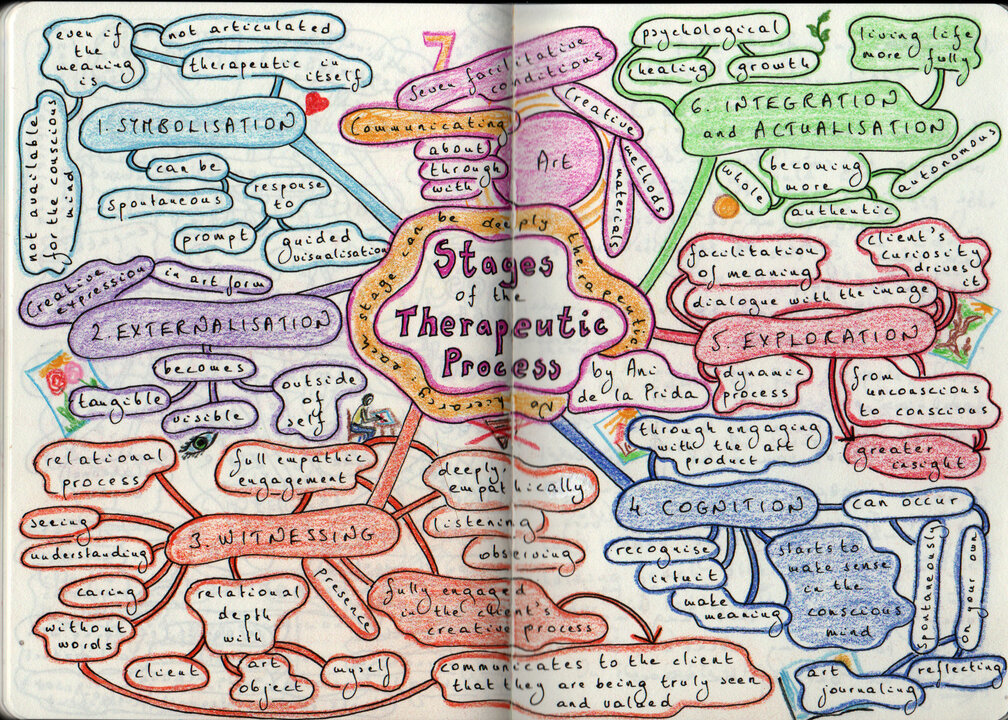 Stages
of the
Therapeutic
Process
by Ani
de la Prida
No hierarchy: each stage can be deeply therapeutic
7
Seven facilitative
conditions
Communicating
about
through
with
Art
Creative
methods
materials
1. SYMBOLISATION
even if
the
meaning
is
not articulated
therapeutic in
itself
not available
for the conscious
mind
can be
spontaneous
response
to
prompt
guided
visualisation
2. EXTERNALISATION
Creative
expression
in art form
becomes
tangible
visible
outside
of
self
3. WITNESSING
relational
process
full empathic
engagement
deeply,
empathically
listening
observing
seeing
understanding
caring
without
words
relational
depth
with
client
art
object
myself
presence
fully engaged
in the client's
creative process
communicates to the client
that they are being truly seen
and valued
4. COGNITION
through engaging
with the art
product
can occur
spontaneously
on your own
reflecting
art
journaling
recognise
intuit
make
meaning
starts to
make sense
in the
conscious
mind
5. EXPLORATION
facilitation
of meaning
dialogue with the image
client's
curiosity
drives
it
dynamic
process
from
unconscious
to conscious
greater
insight
6. INTEGRATION
and ACTUALISATION
psychological
healing
growth
living life
more fully
becoming
more
whole
authentic
autonomous